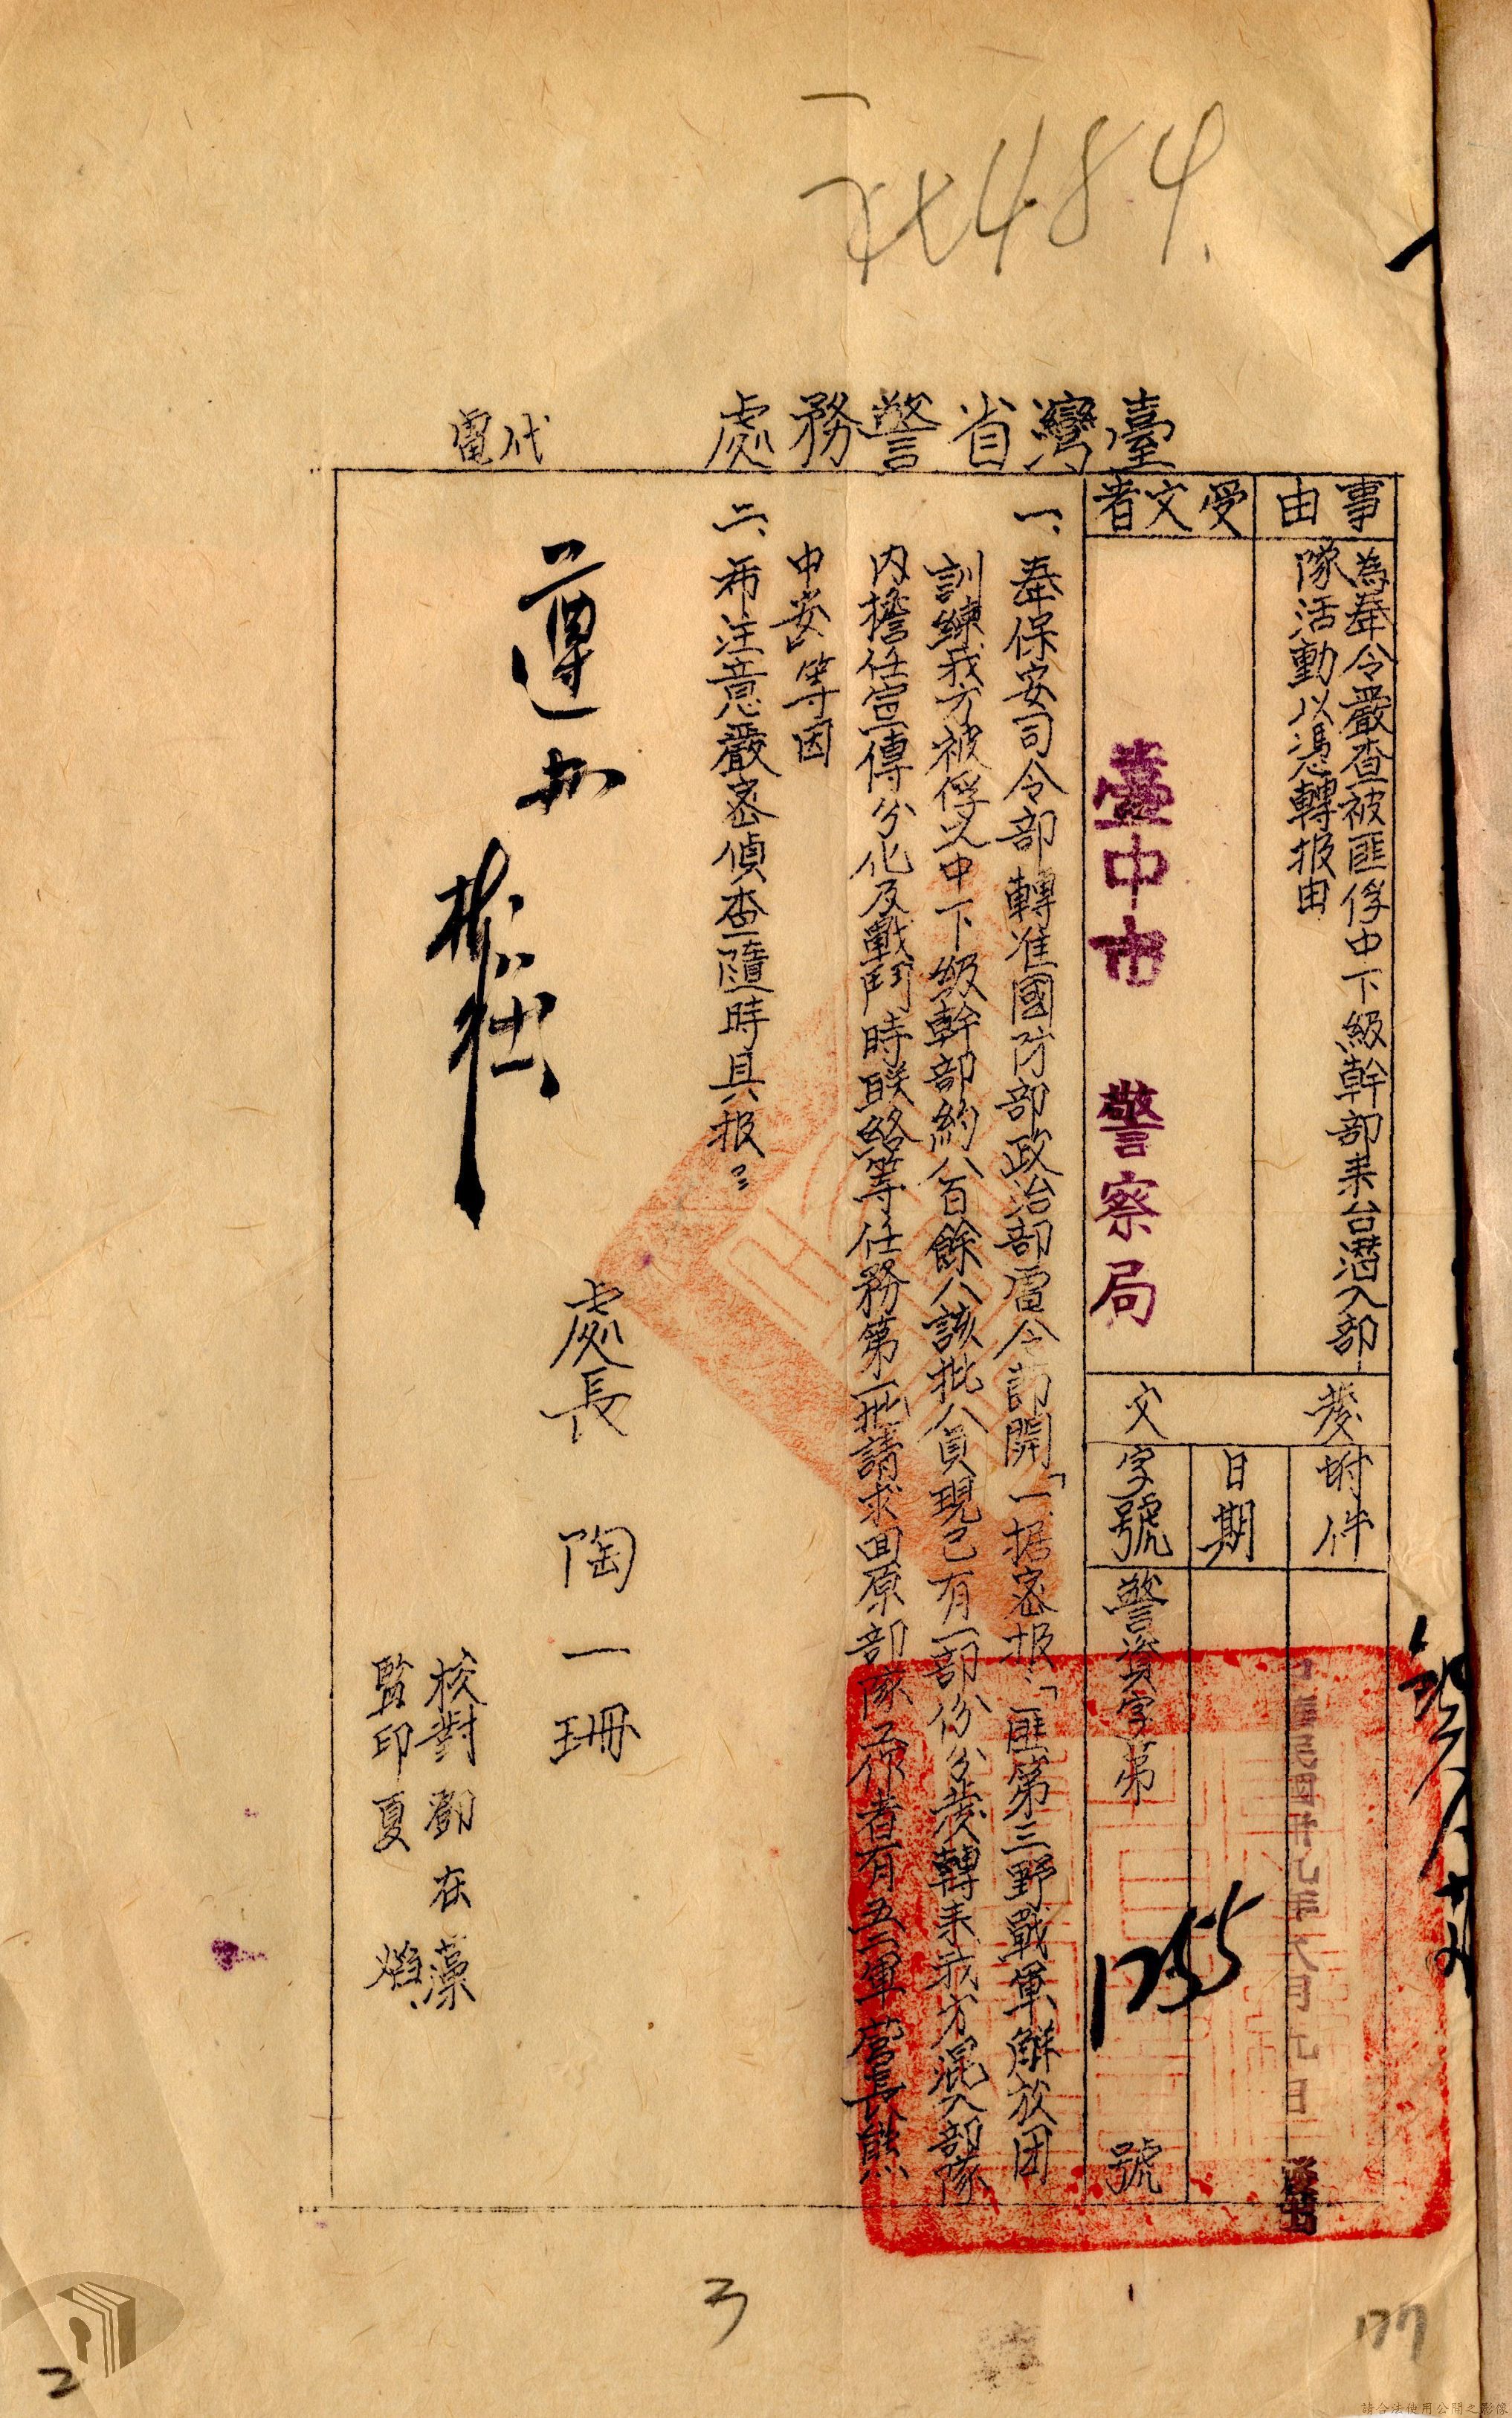 臺灣省警務處
代電
事由
為奉令嚴查被匪俘中下級幹部来台潜入部
隊活動以憑轉报由
受文者
臺中市 警察局
發文
附件
日期
字號
警資字第 號
一、奉保安司令部轉准國防部政治部
令
開「一据密报「匪第三野戰軍解放团
訓練我方被俘之中下級幹部約八百餘人該批人員現已有一部份分發轉来我方混入部隊
内擔任宣傳分化及戰鬥時联絡等任務第一批請求回原部隊工作者有五二軍營長熊
中安」等因
二、希注意嚴密偵查隨時具报
處長 陶一珊
校對 鄧在藻
監印 夏
遵办
484
3
2
177
請合法使用公開之影像